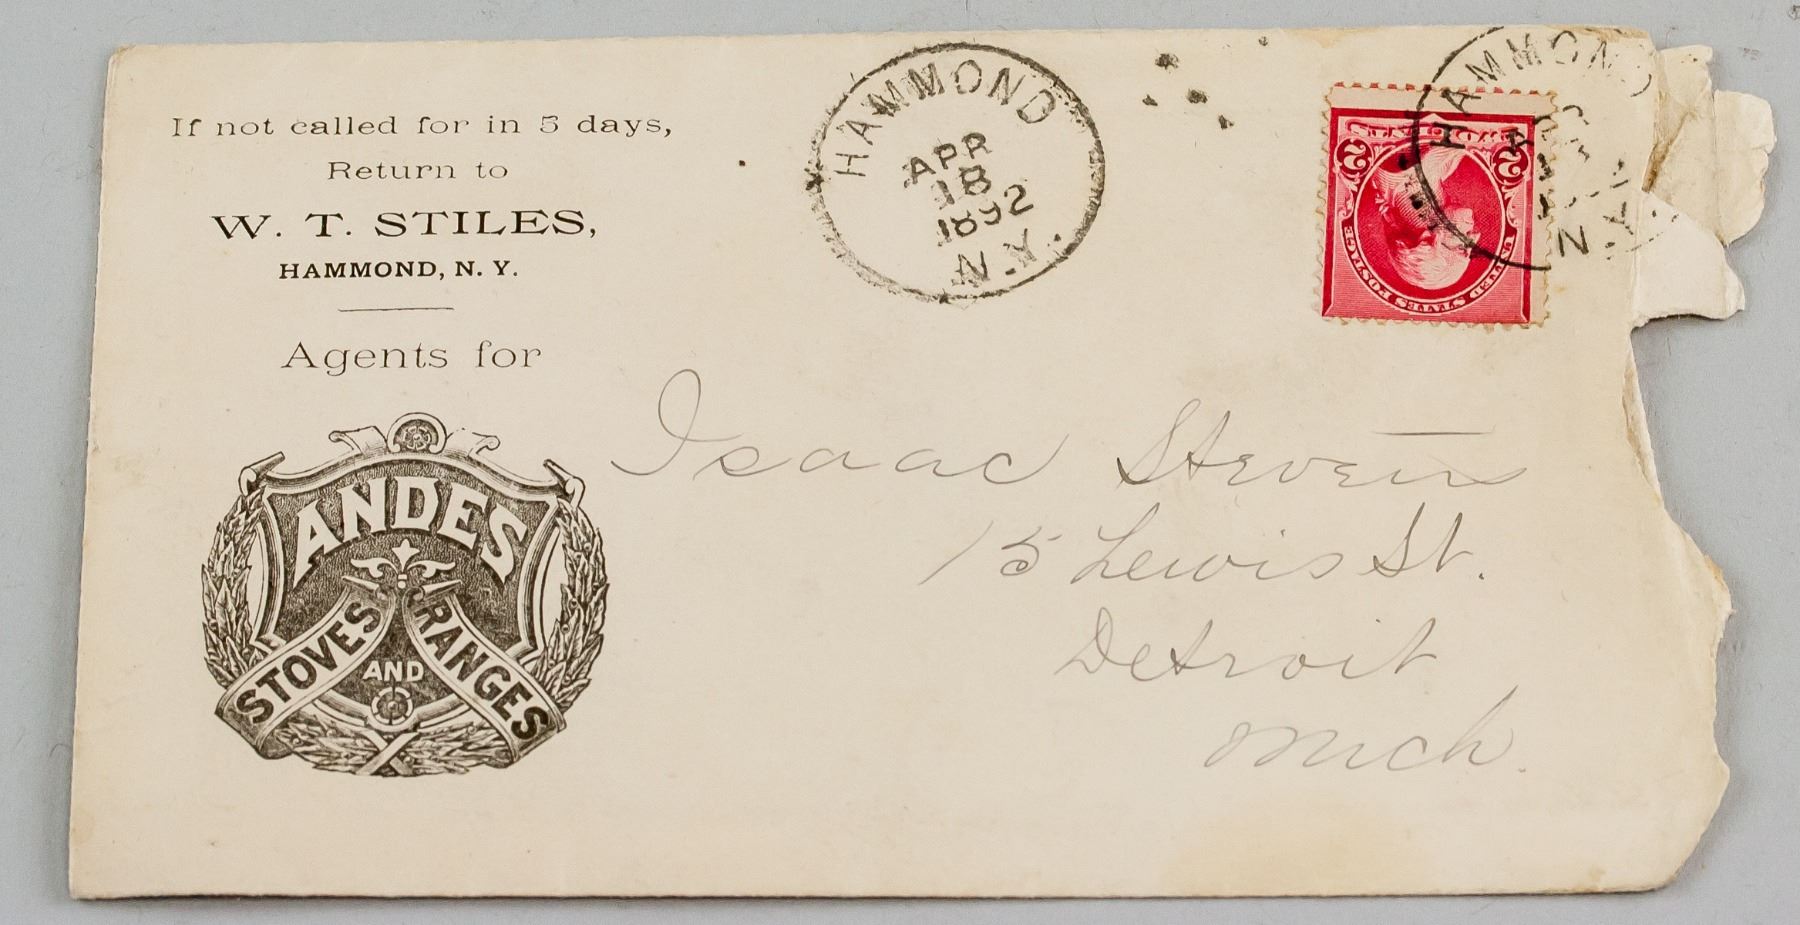 If not called for in 5 days,
Return to
W. T. STILES,
HAMMOND, N. Y.
Agents for
ANDES
STOVES AND RANGES
HAMMOND
APR
18
1892
N.Y.
HAMMOND
N.Y.
UNITED STATES POSTAGE
2 2
Isaac Stevens
15 Lewis St.
Detroit
Mich.